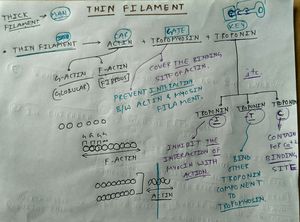 THIN FILAMENT
THICK → MAN
FILAMENT
CAR GATE KEY
• THIN FILAMENT → ACTIN + TROPOMYOSIN + TROPONIN
G-ACTIN F-ACTIN
(GLOBULAR) (FIBROUS)
COVER THE BINDING
SITE OF ACTIN.
PREVENT INTERACTION
B/W ACTIN & MYOSIN
FILAMENT.
TROPONIN TROPONIN TROPONIN
I T C
G G G
F-ACTIN
ACTIN
INHIBIT THE
INTERACTION OF
MYOSIN WITH
ACTION.
BIND
OTHER
TROPONIN
COMPONENT TO
TROPOMYOSIN
CONTAIN
FOR Ca²⁺
BINDING
SITE